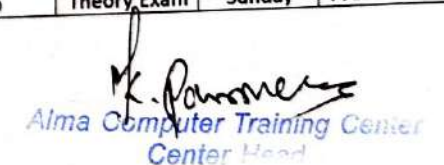 Theory Exam Sunday
Alma Computer Training Center
Center Head